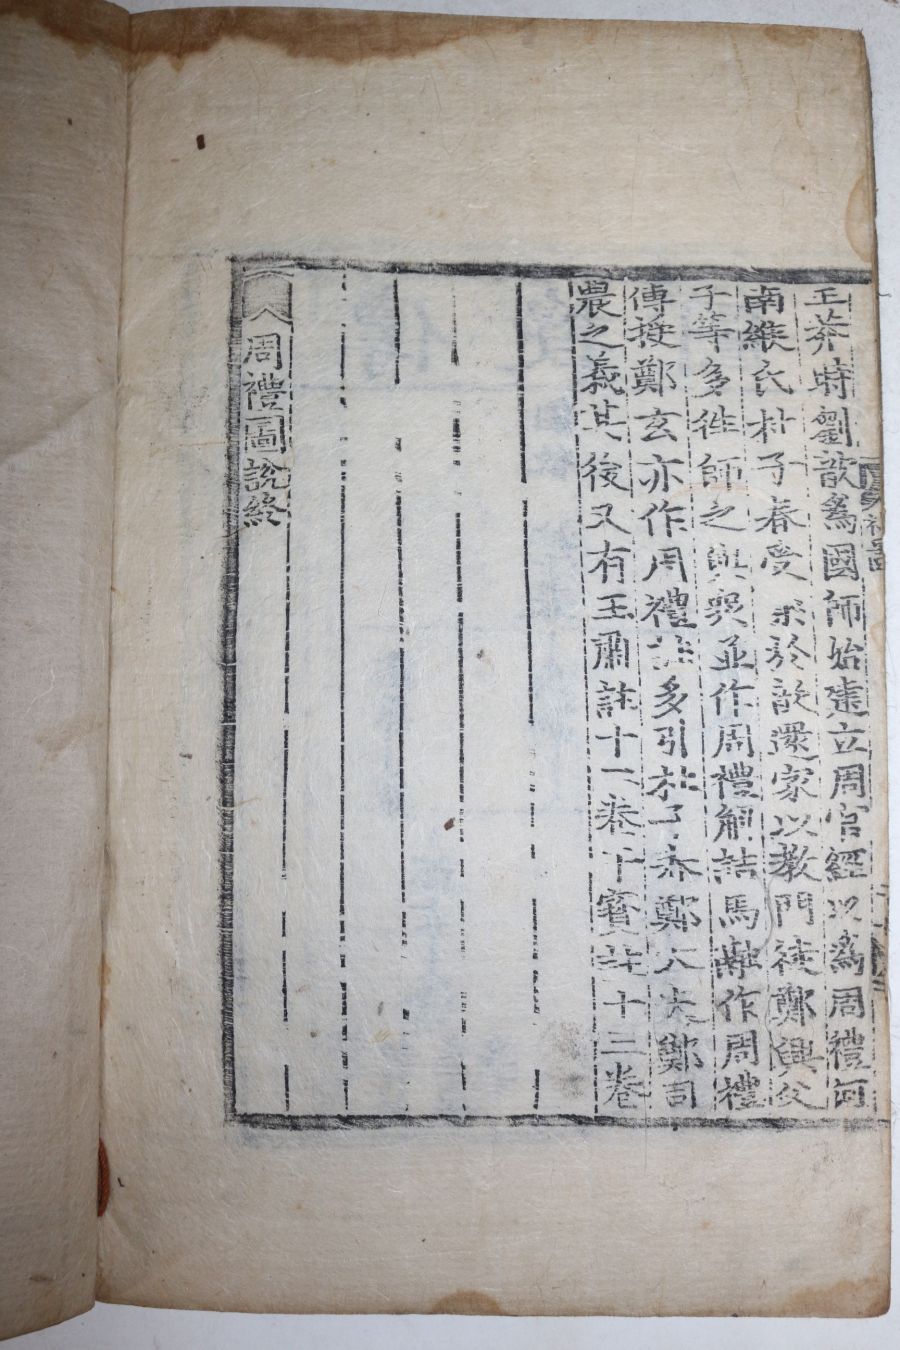 王莽時劉歆爲國師始建立周官經以爲周禮河
南緱氏杜子春受業於歆還家以教門徒鄭興父
子等多往師之興與並作周禮解詁馬融作周禮
傳授鄭玄亦作周禮註多引杜子春鄭大夫鄭司
農之義其後又有王肅註十二卷干寶註十三卷
周禮圖說終